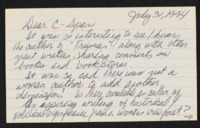 July 31, 1994
Dear C-Span
It was so interesting to see/hear
the author of "Truman" along with other
great writers, sharing comments on
books and bookstores.
It was so sad there was not a
woman author to add another
dimension. Is there available an author of
the inspiring writing of historical/
political from a woman's view point?